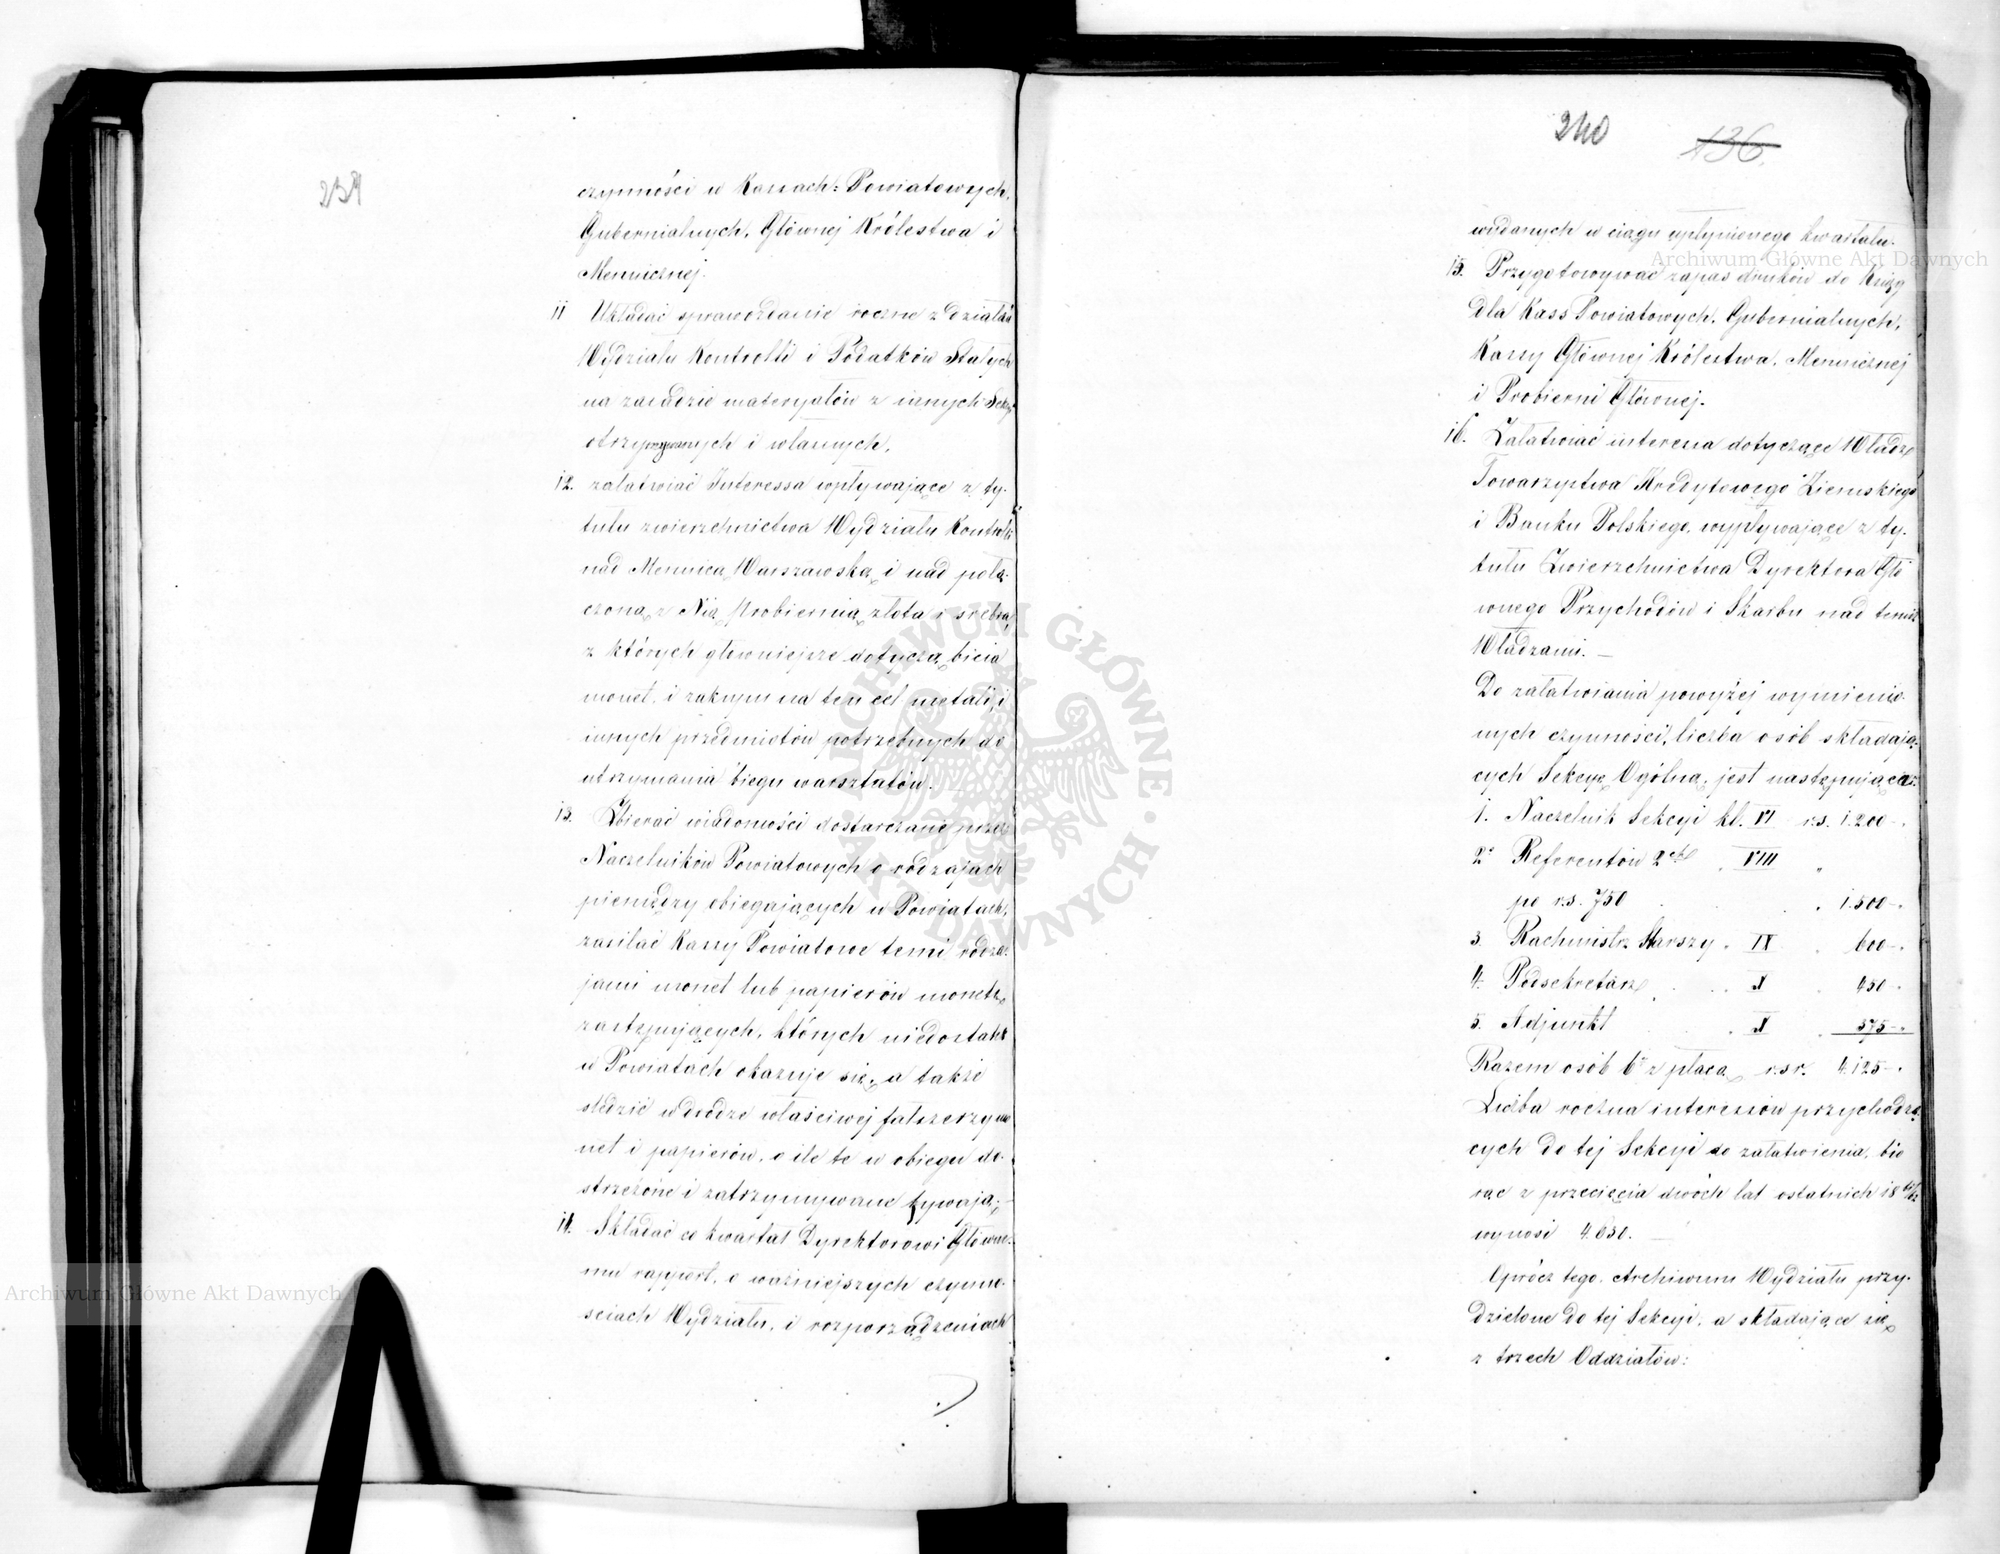 239
czynności w Kassach: Powiatowych,
Gubernialnych, Głównej Królestwa i
Mennicznej.
11 Układać sprawozdanie roczne z działań
Wydziału Kontrolli i Podatków Stałych
na zasadzie materyałów z innych Sekcyi
otrzymywanych i własnych.
12. załatwiać Interessa wpływające z ty-
tułu zwierzchnictwa Wydziału Kontrolli
nad Mennicą Warszawską i nad połą-
czoną z Nią Probiernią złota i srebra,
z których główniejsze dotyczą bicia
monet, i zakupu na ten cel metali, i
innych przedmiotów potrzebnych do
utrzymania biegu warsztatów.
13. Zbierać wiadomości dostarczane przez
Naczelników Powiatowych o rodzajach
pieniędzy obiegających w Powiatach,
zasilać Kassy Powiatowe temi rodza-
jami monet lub papierów monetę
zastępujących, których niedostatek
w Powiatach okazuje się, a także
śledzić w drodze właściwej fałszerzy mo
net i papierów, o ile te w obiegu do-
strzeżone i zatrzymywane bywają.
14. Składać co kwartał Dyrektorowi Główne-
mu rapport, o ważniejszych czynno-
ściach Wydziału, i rozporządzeniach
240 136.
wydanych w ciągu upłynionego kwartału.
15. Przygotowywać zapas druków do Książ
dla Kass Powiatowych, Gubernialnych,
Kassy Głównej Królestwa, Mennicznej
i Probierni Głównej.
16. Załatwiać interessa dotyczące Władz
Towarzystwa Kredytowego Ziemskiego
i Banku Polskiego, wypływające z ty-
tułu Zwierzchnictwa Dyrektora Głó
wnego Przychodów i Skarbu nad temiż
Władzami. —
Do załatwiania powyżej wymienio-
nych czynności, liczba osób składają-
cych Sekcyę Ogólną, jest następująca:
1. Naczelnik Sekcyi kl. VI rs. 1.200 -
2. Referentów 2ch " VIII "
po rs. 750 " 1.500 -
3. Rachmistrz Starszy " IX " 600 -
4. Podsekretarz " X " 450 -
5. Adjunkt " X " 375 -
Razem osób 6 z płacą rsr. 4.125 -
Liczba roczna interessów przychodzą-
cych do tej Sekcyi do załatwienia, bio
rąc z przecięcia dwóch lat ostatnich
wynosi 4.030. —
Oprócz tego, Archiwum Wydziału przy-
dzielone do tej Sekcyi, a składające się
z trzech Oddziałów:
Archiwum Główne Akt Dawnych
Archiwum Główne Akt Dawnych
ARCHIWUM GŁÓWNE AKT DAWNYCH